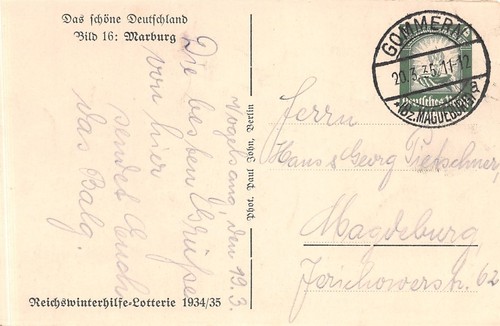 Das schöne Deutschland
Bild 16: Marburg
Vogelsang, den 19.3.
Die besten Grüße
von hier
sendet Euch
das Balg.
Phot. Paul John, Berlin
Reichswinterhilfe-Lotterie 1934/35
GOMMERN
20.3.35.11-12
a
*BZ. MAGDEBURG*
Deutsches Reich
Herrn
Hans & Georg Tietschner,
Magdeburg
Jerichowerstr. 62